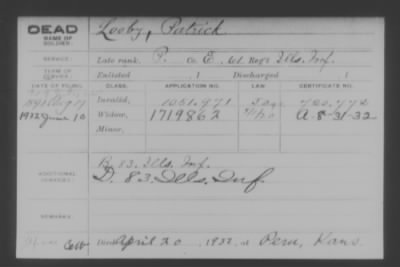 DEAD Looby, Patrick
NAME OF
SOLDIER:
SERVICE: Late rank, P. Co. E, Regt Ills. Inf.
TERM OF
SERVICE: Enlisted , 1 Discharged , 1
DATE OF FILING. CLASS. APPLICATION NO. LAW. CERTIFICATE NO.
1891 Aug Invalid, 1051.971
1932 June 10 Widow, 1719862 A-8-31-32
Minor,
ADDITIONAL
SERVICES: B. 83. Ills. Inf.
D. 83. Ills. Inf.
REMARKS:
Died April 20 1932, at Peru, Kans.